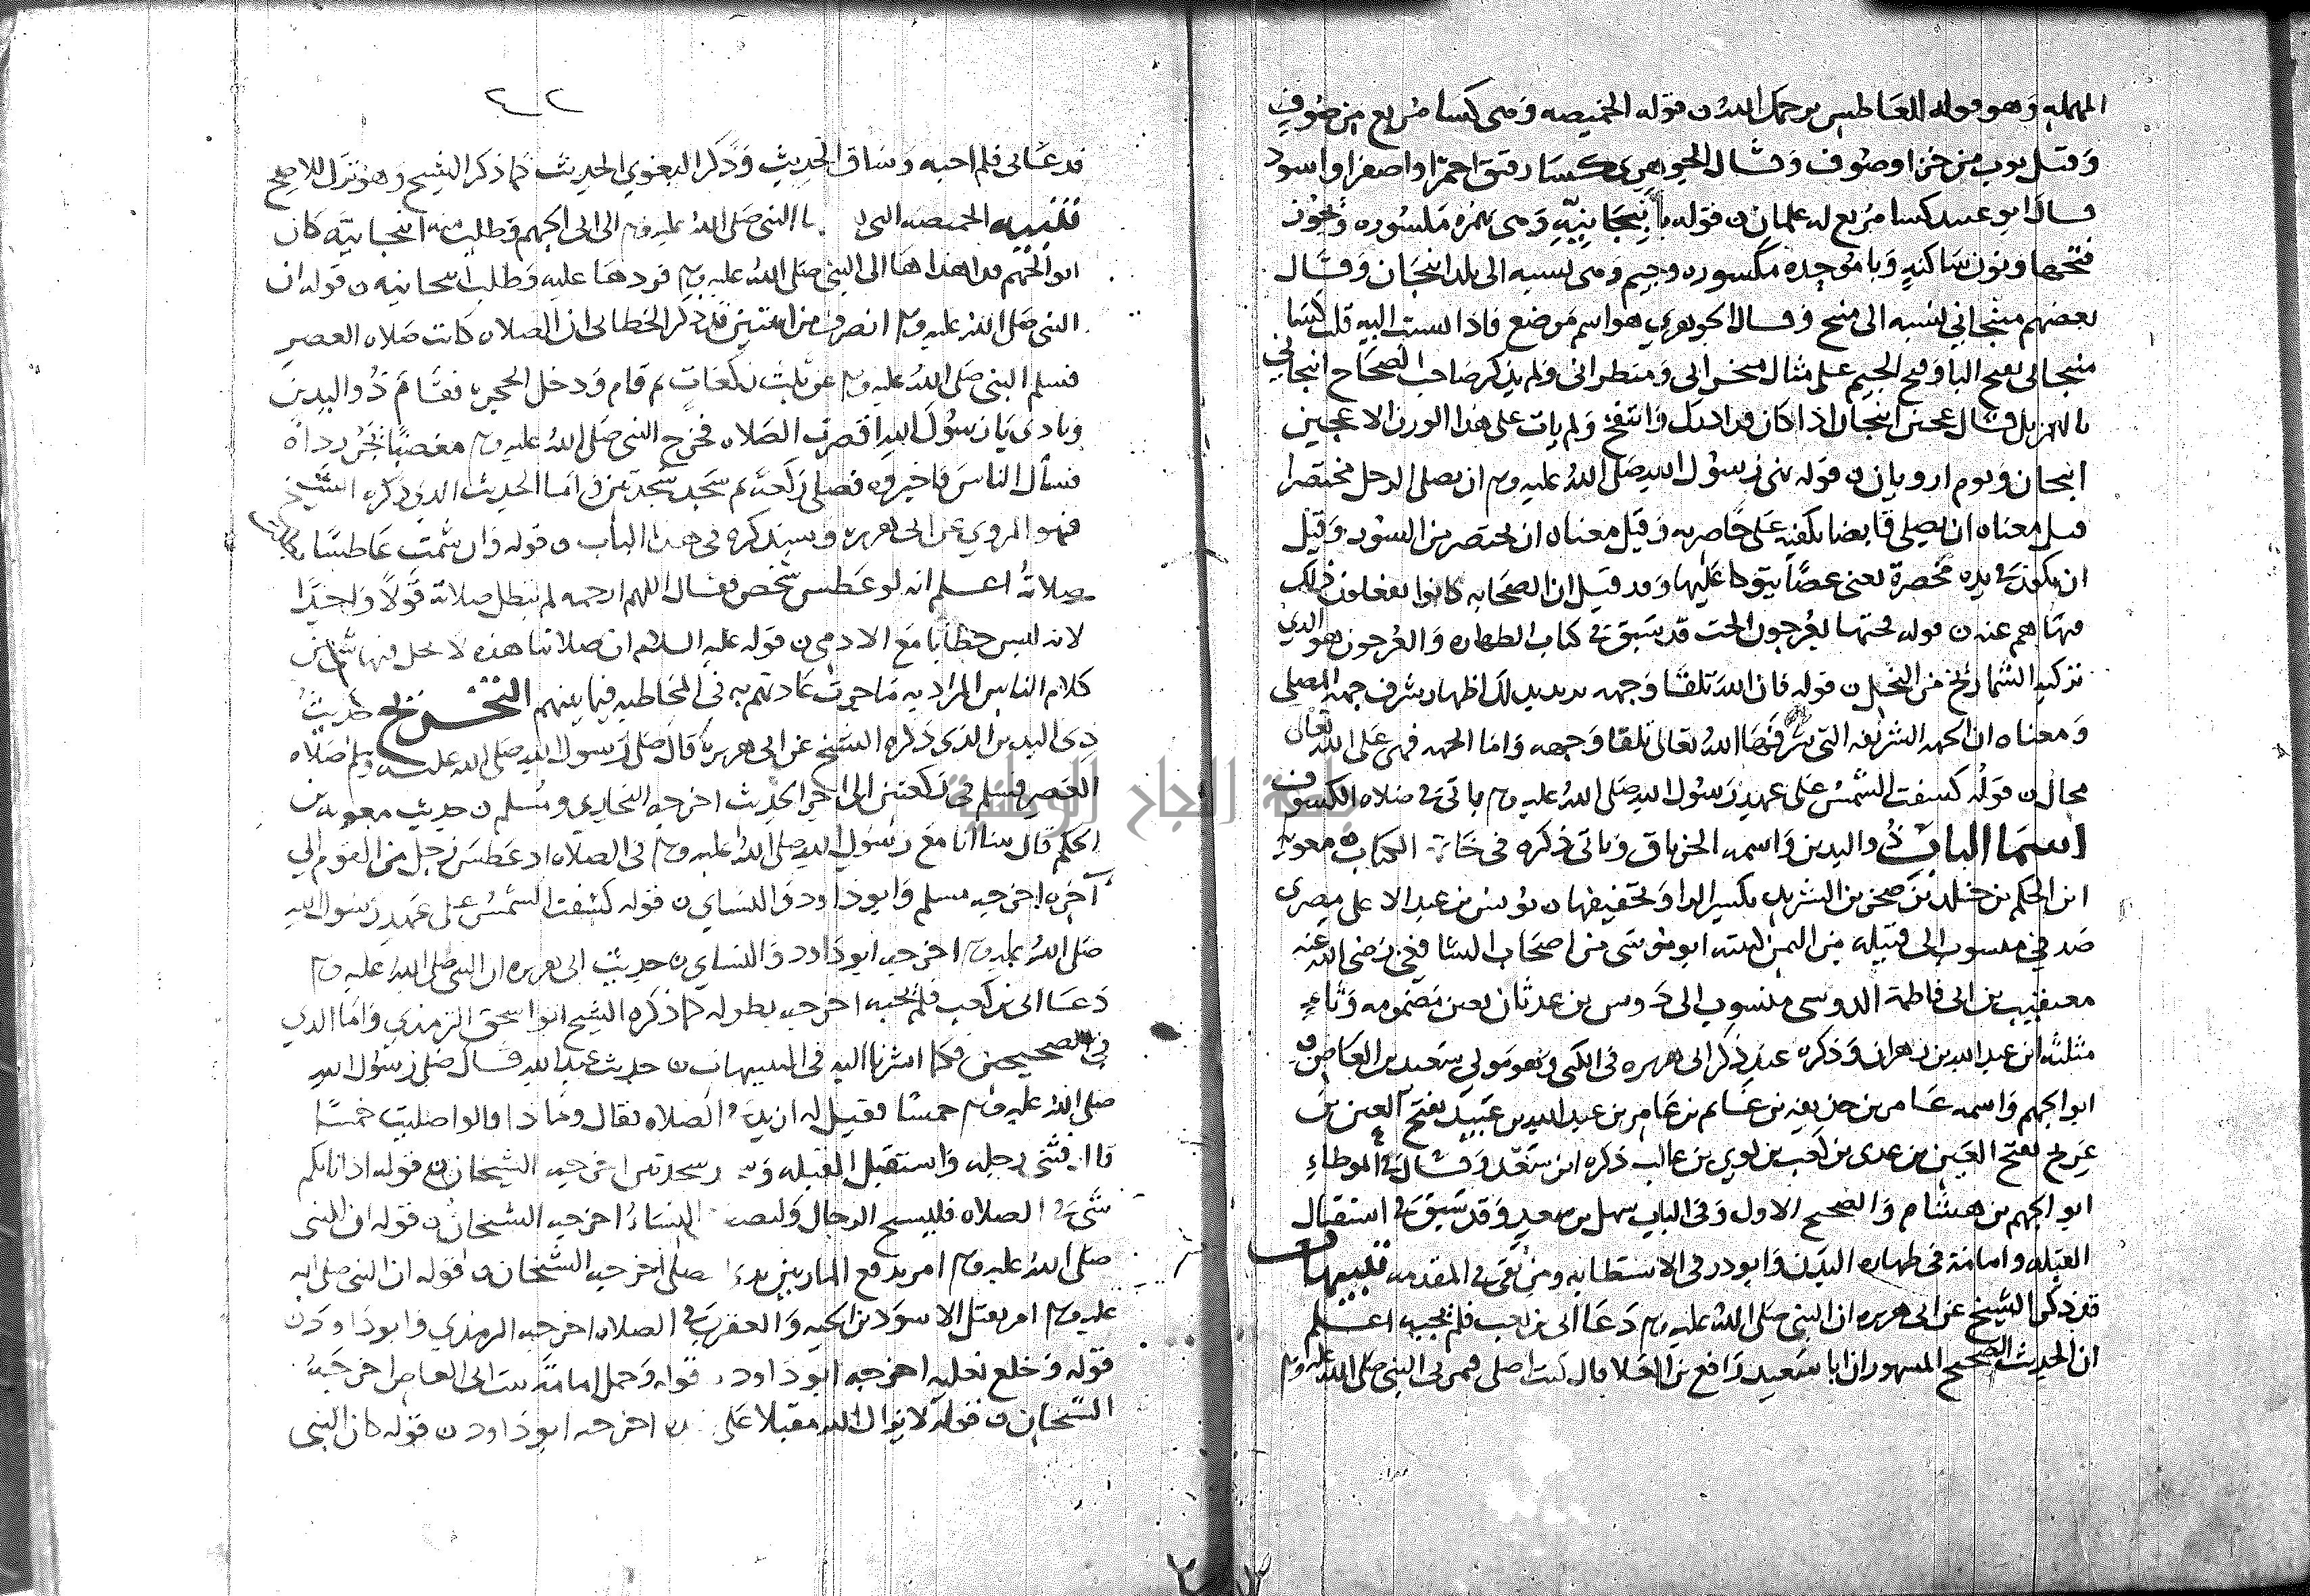 المهمله وهو قوله للعاطس يرحمك الله ن قوله الخميصه وهى كسا مربع من صوف
وقيل ثوب من خز او صوف وقال الجوهرى كسا رقيق احمر او اصفر او اسود
قال ابو عبيد كسا مربع له علمان ن قوله بانبجانيه وهى بهمزه مكسوره ويجوز
فتحها ونون ساكنه وبا موحده مكسوره وجيم وهى نسبه الى بلد انبجان وقال
بعضهم منبجاني نسبه الى منبج وقال الجوهري هو اسم موضع فاذا نسبت اليه قلت كسا
منبجانى بفتح البا وفتح الجيم على مثال مخبرانى ومنظرانى ولم يذكر صاحب الصحاح انبجاني
بالهمز بل قال عجين انبجان اذا كان قد ادرك وانتفخ ولم يات على هذا الوزن الا عجين
انبجان ويوم ارونان ن قوله نهى رسول الله صلى الله عليه وم ان يصلى الرجل مختصرا
قيل معناه ان يصلى قابضا بكفيه على خاصرته وقيل معناه ان يختصر من السور وقيل
ان يكون في يده مخصرة يعنى عصًا يتوكا عليها وقد قيل ان الصحابه كانوا يفعلون ذلك
فنهاهم عنه ن قوله فحتها بعرجون الحت قد سبق في كتاب الطهاره والعرجون هو الذي
تركبه الشماريخ من النخل ن قوله فان الله تلقا وجهه يريد بذلك اظهار شرف جهة المصلى
ومعناه ان الجهه الشريفه التى شرفها الله تعالى تلقا وجهه واما الجهه فهى على الله تعالى
محال ن قوله كسفت الشمس على عهد رسول الله صلى الله عليه وم ياتى في صلاه الكسوف
اسما الباب ذو اليدين واسمه الخرباق وياتى ذكره فى خاتمة الكتاب ه معويه
ابن الحكم بن خلد بن صخر بن الشريد بكسر الرا وتخفيفها ن يونس بن عبد الاعلى مصرى
صدفي منسوب الى قبيله من اليمن كنيته ابو موسى من اصحاب الشافعى رضى الله عنه
معيقيب بن ابى فاطمة الدوسى منسوب الى دوس بن عدثان بعين مضمومه وثاء
مثلثه ابن عبد الله بن زهران وذكره عند ذكر ابى هريره فى الكنى وهو مولى سعيد بن العاص ن
ابو الجهم واسمه عامر بن حذيفه بن غانم بن عامر بن عبد الله بن عبيد بفتح العين بن
عويج بفتح العين بن عدى بن كعب بن لوي بن غالب ذكره ابن سعد وقال في الموطاء
ابو الجهم بن هشام والصحيح الاول وفى الباب سهل بن سعد وقد سبق في استقبال
القبله وامامة فى طهاره البدن وابو ذر فى الاستطابه ومن بقى في المقدمه تنبيهات
قد ذكر الشيخ عن ابى هريره ان النبى صلى الله عليه وم دعا ابى بن كعب فلم يجبه اعلم
ان الحديث الصحيح المشهور ان ابا سعيد رافع بن المعلا قال كنت اصلى فمر بى النبى صلى الله عليه وم
٤٠٢
فدعانى فلم اجبه وساق الحديث وذكر البغوي الحديث كما ذكر الشيخ وهو
تنبيه الخميصه التى النبى صلى الله عليه وم الى ابى الجهم وطلب منه انبجانية كان
ابو الجهم قد اهداها الى النبى صلى الله عليه وم فردها عليه وطلب انبجانيه ن قوله ان
النبى صلى الله عليه وم انصرف من اثنتين ذكر الخطابى ان الصلاه كانت صلاه العصر
فسلم النبى صلى الله عليه وم عن ثلث ركعات ثم قام ودخل الحجره فقام ذو اليدين
ونادى يا رسول الله اقصرت الصلاه فخرج النبى صلى الله عليه وم مغضبًا يجر رداه
فسال الناس فاخبروه فصلى ركعة ثم سجد سجدتين ن اما الحديث الذى ذكره الشيخ
فهو المروي عن ابى هريره وسنذكره فى هذا الباب ن قوله وان شمت عاطسًا
صلاته اعلم انه لو عطس شخص فقال اللهم ارحمه لم تبطل صلاته قولًا واحدًا
لانه ليس خطابا مع الادمى ن قوله عليه السلام ان صلاتنا هذه لا يحل فيها شى من
كلام الناس المراد به ما جرت عادتهم به فى المخاطبه فيما بينهم التخريج حديث
ذى اليدين الذى ذكره الشيخ عن ابى هريره قال صلى رسول الله صلى الله عليه وسلم صلاه
العصر فسلم فى ركعتين الى اخر الحديث اخرجه البخاري ومسلم ن حديث معويه بن
الحكم قال بينا انا مع رسول الله صلى الله عليه وم فى الصلاه اذ عطس رجل من القوم الى
آخره اخرجه مسلم وابو داود والنساي ن قوله كسفت الشمس على عهد رسول الله
صلى الله عليه وم اخرجه ابو داود والنساي ن حديث ابى هريره ان النبى صلى الله عليه وم
دعا ابى بن كعب فلم يجبه اخرجه بطوله كما ذكره الشيخ ابو اسحق الترمذي واما الذي
في الصحيحين فكما اشرنا اليه فى التنبيهات ن حديث عبد الله قال صلى رسول الله
صلى الله عليه وم خمسا فقيل له ازيد في الصلاه فقال وما ذا قالوا صليت خمسًا
فثنى رجله واستقبل القبله سجدتين اخرجه الشيخان ن قوله اذا نابكم
شى في الصلاه فليسبح الرجال النساءُ اخرجه الشيخان ن قوله ان النبى
صلى الله عليه وم امر بدفع المار بين يدى صلى اخرجه الشيخان ن قوله ان النبى صلى الله
عليه وم امر بقتل الاسودين الحيه والعقرب في الصلاه اخرجه الترمذي وابو داود ن
قوله وخلع نعليه اخرجه ابو داود قوله وحمل امامة بنت ابى العاص اخرجه
الشيخان ن قوله لا يزال الله مقبلا على اخرجه ابو داود ن قوله كان النبى
جامعة النجاح الوطنية